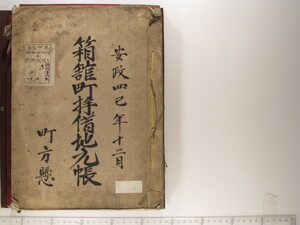 安政四巳年十二月
箱館町拝借地元帳
町方懸